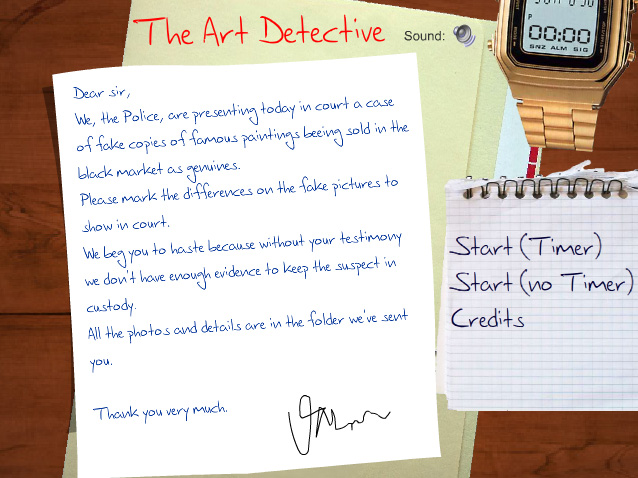 The Art Detective
Sound:
Dear sir,
We, the Police, are presenting today in court a case
of fake copies of famous paintings beeing sold in the
black market as genuines.
Please mark the differences on the fake pictures to
show in court.
We beg you to haste because without your testimony
we don't have enough evidence to keep the suspect in
custody.
All the photos and details are in the folder we've sent
you.
Thank you very much.
P
00:00
SNZ ALM SIG
Start (Timer)
Start (no Timer)
Credits